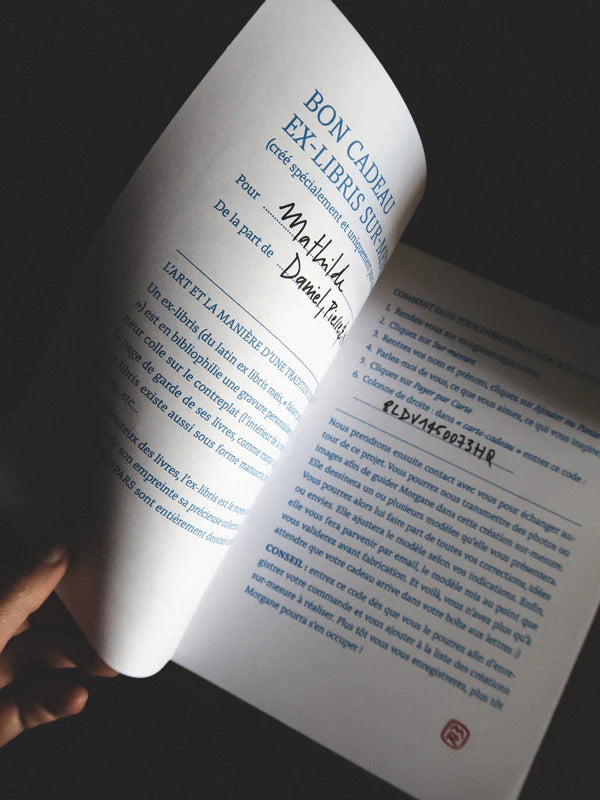 BON CADEAU
EX-LIBRIS SUR-
(créé spécialement et uniquement
Pour Mathilde
De la part de Daniel,
L'ART ET LA MANIÈRE D'UNE
Un ex-libris (du latin ex libris meis, «
») est en bibliophilie une gravure
colle sur le contreplat (l'intérieur de
page de garde de ses livres, comme
libris existe aussi sous forme
etc...
des livres, l'ex-libris est le
de son empreinte sa précieuse
PARS sont entièrement
COMMENT FAIRE POUR
1. Rendez-vous sur
2. Cliquez sur Sur-mesure
3. Rentrez vos nom et prénom, cliquez sur Ajouter au
4. Parlez-moi de vous, ce que vous aimez, ce qui vous
5. Cliquez sur Payer par Carte
6. Colonne de droite : dans « carte cadeau » entrez ce code :
8LDV1450073HQ
Nous prendrons ensuite contact avec vous pour échanger au-
tour de ce projet. Vous pourrez nous transmettre des photos ou
images afin de guider Morgane dans cette création sur-mesure.
Elle dessinera un ou plusieurs modèles qu'elle vous présentera.
Vous pourrez alors lui faire part de toutes vos corrections, idées
ou envies. Elle ajustera le modèle selon vos indications. Enfin,
elle vous fera parvenir par email, le modèle mis au point que
vous validerez avant fabrication. Et voilà, vous n'avez plus qu'à
attendre que votre cadeau arrive dans votre boîte aux lettres :)
CONSEIL : entrez ce code dès que vous le pourrez afin d'enre-
gistrer votre commande et vous ajouter à la liste des créations
sur-mesure à réaliser. Plus tôt vous vous enregistrerez, plus tôt
Morgane pourra s'en occuper !